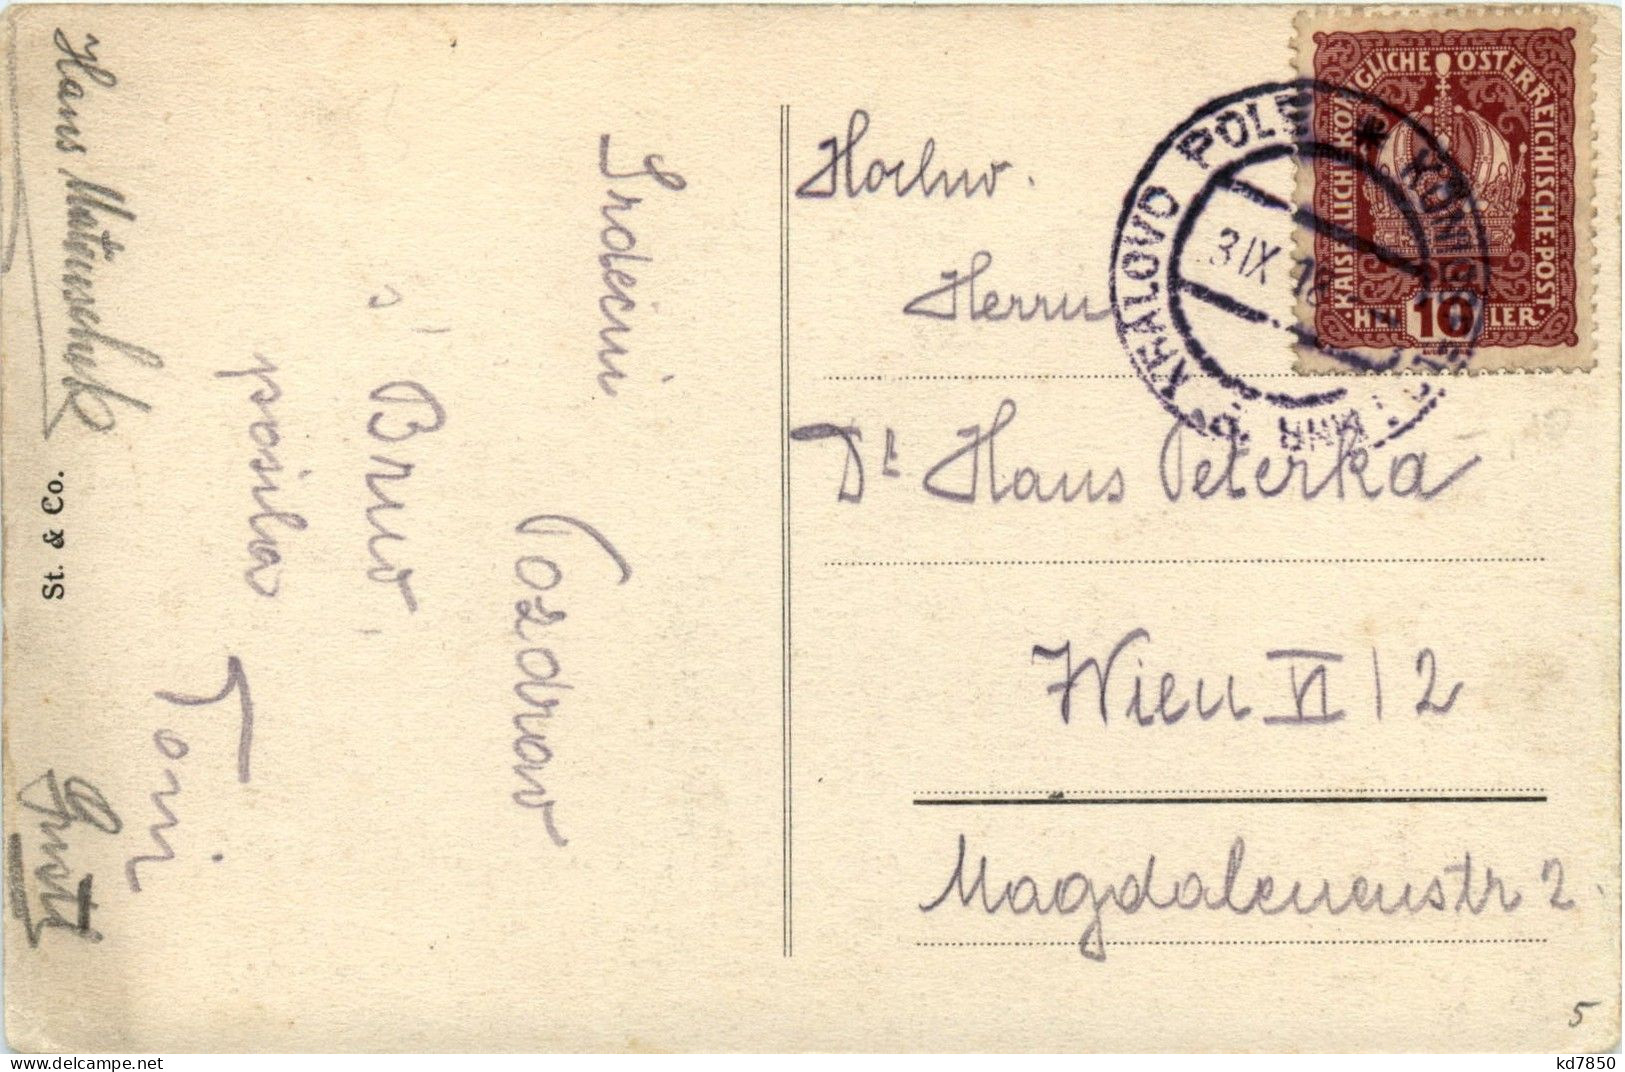 Hans Matouschek
Gusti
St. & Co.
Srdečni
Pozdrav
s' Brna
posila
Toni
Hochw.
Herrn
Dr. Hans Peterka
Wien VI/2
Magdalenenstr 2.
KAISERLICHE KÖNIGLICHE ÖSTERREICHISCHE·POST
·HEL 10 LER·
KRÁLOVO POLE * KÖNIG
3 IX 18
5
kd7850